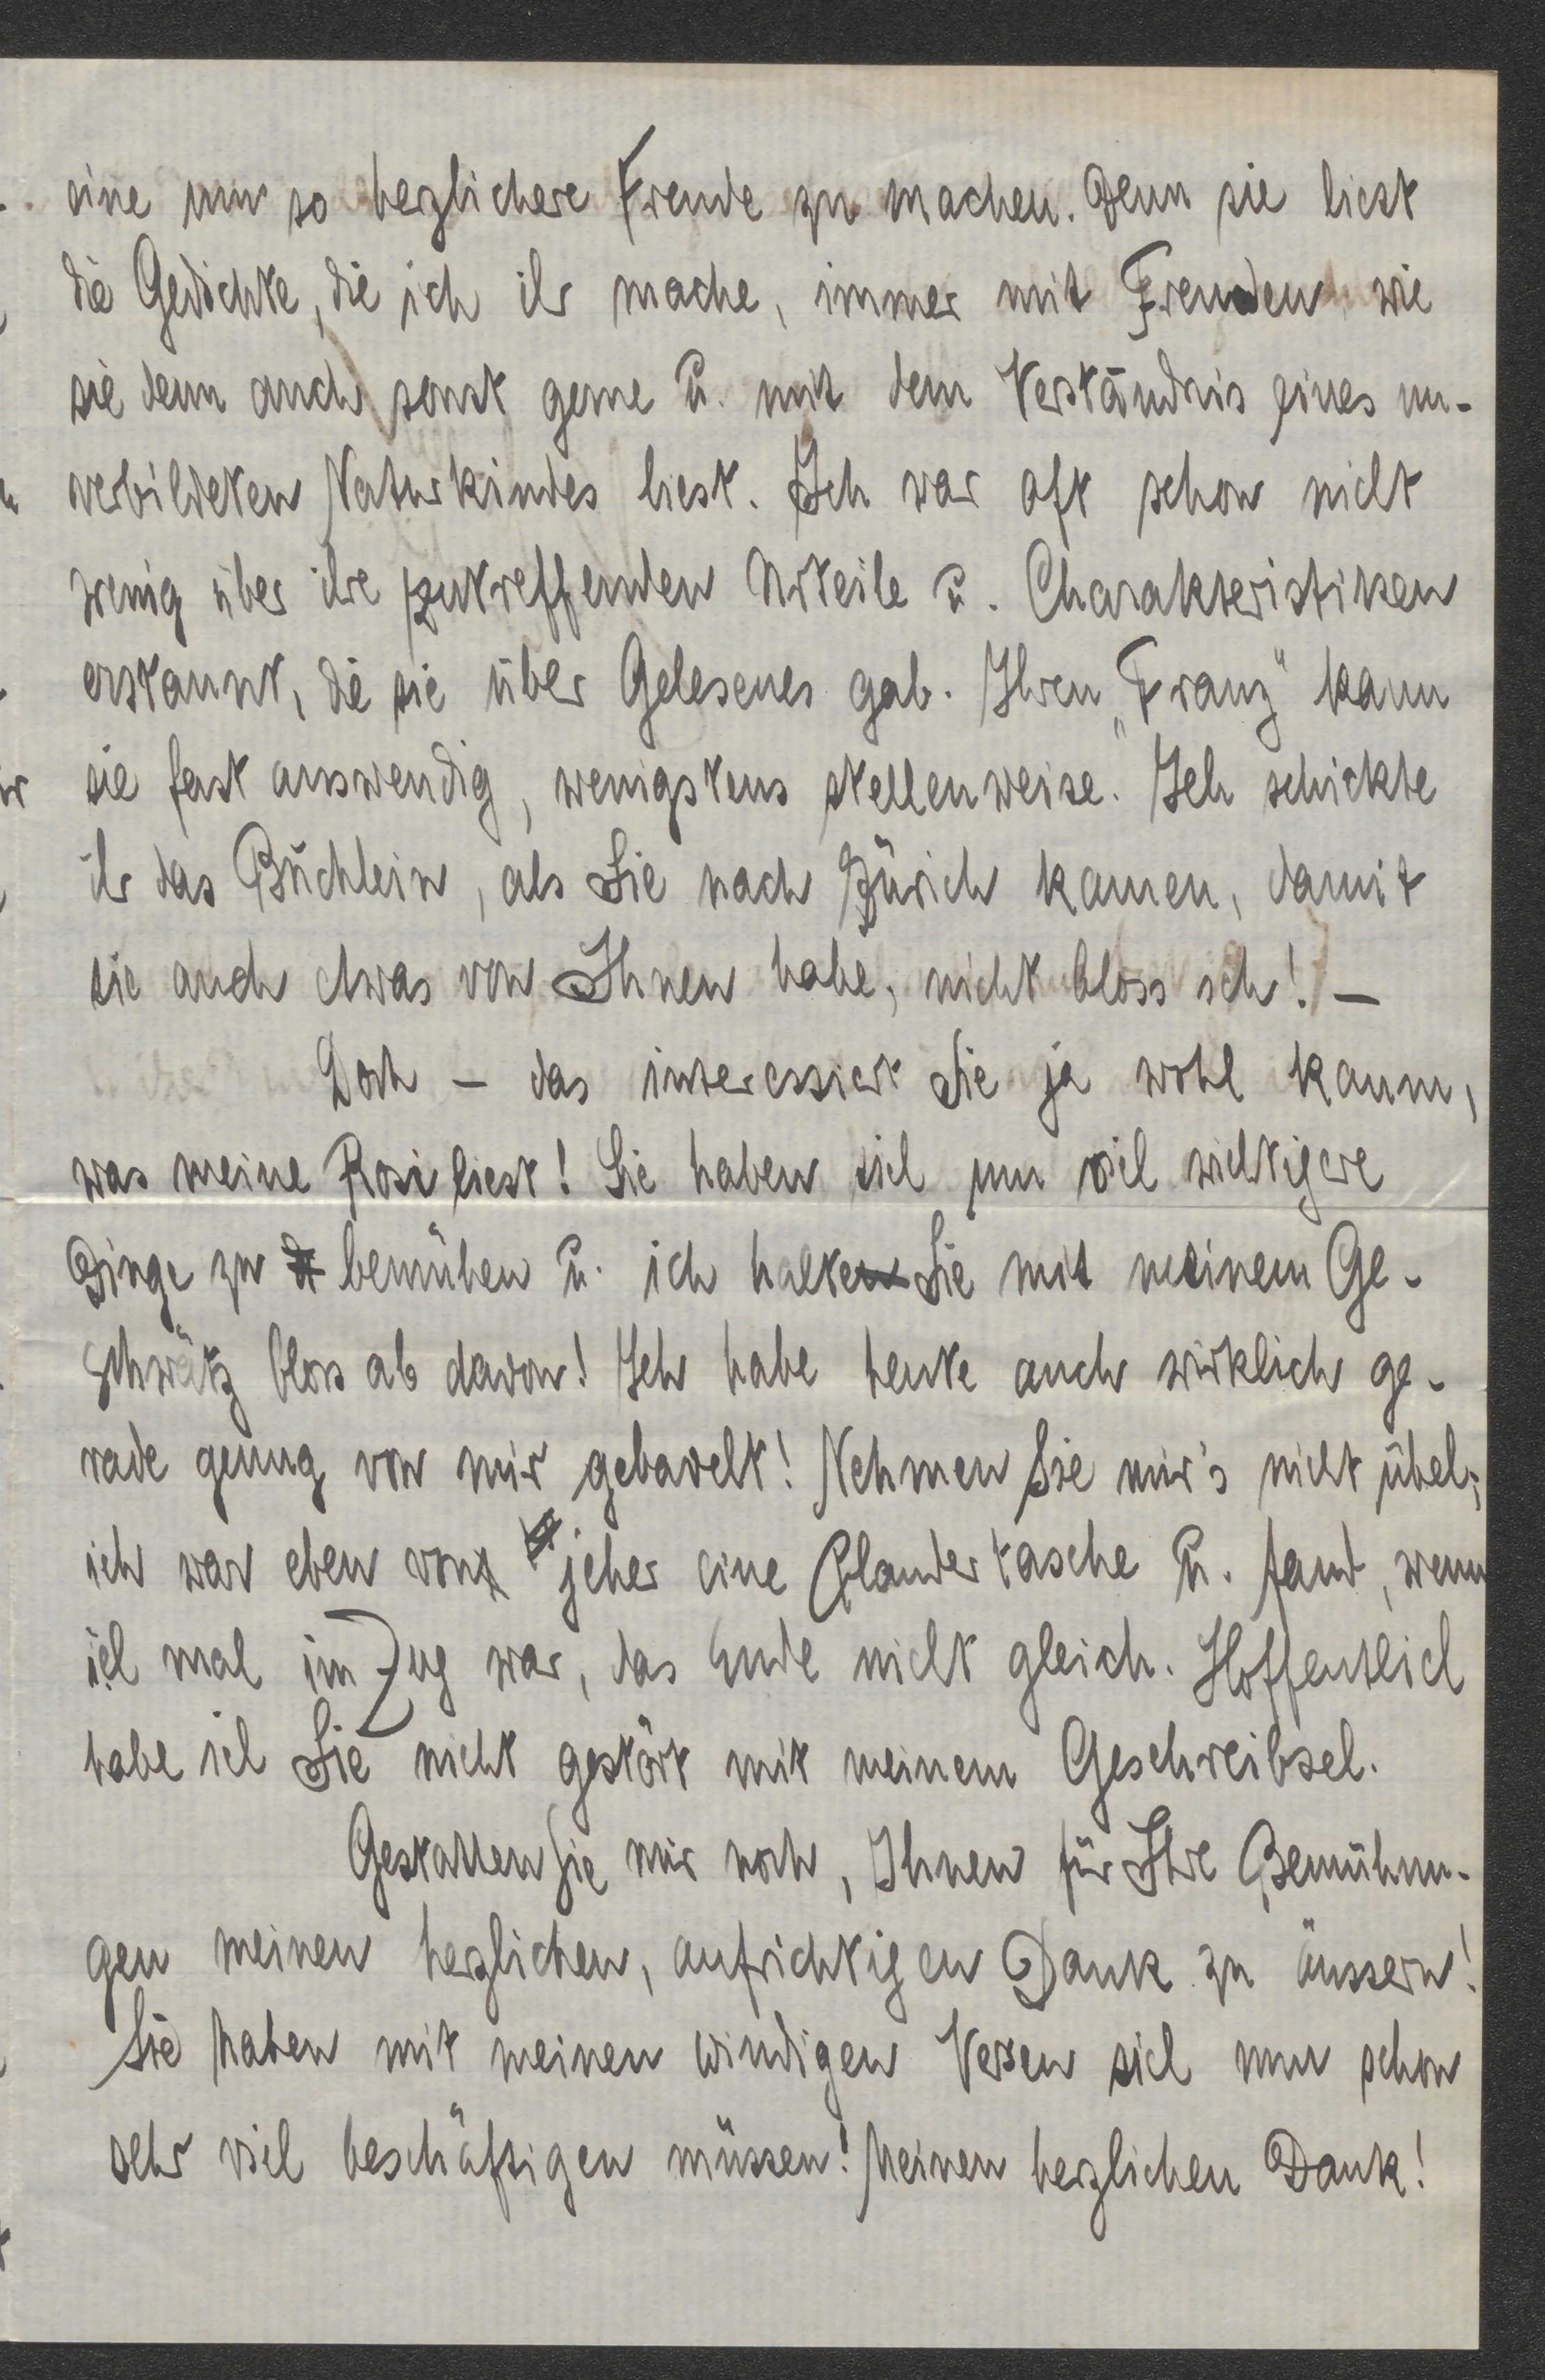 eine um so herzlichere Freude zu machen. Denn sie liest
die Gedichte, die ich ihr mache, immer mit Freuden, wie
sie denn auch sonst gerne u. mit dem Verständnis eines un-
verbildeten Naturkindes liest. Ich war oft schon nicht
wenig über ihre zutreffenden Urteile u. Charakteristiken
erstaunt, die sie über Gelesenes gab. Ihren „Franz" kann
sie fast auswendig, wenigstens stellenweise. Ich schickte
ihr das Büchlein, als Sie nach Zürich kamen, damit
sie auch etwas von Ihnen habe, nicht bloss ich! –
Doch – das interessiert Sie ja wohl kaum,
was meine Rosi liest! Sie haben sich um viel wichtigere
Dinge zu bemühen u. ich halte Sie mit meinem Ge-
schwätz bloss ab davon! Ich habe heute auch wirklich ge-
rade genug von mir gebavelt! Nehmen Sie mir's nicht übel;
ich war eben von jeher eine Plaudertasche u. fand, wenn
ich mal im Zug war, das Ende nicht gleich. Hoffentlich
habe ich Sie nicht gestört mit meinem Geschreibsel.
Gestatten Sie mir noch, Ihnen für Ihre Bemühun-
gen meinen herzlichen, aufrichtigen Dank zu äussern!
Sie haben mit meinen windigen Versen sich nun schon
sehr viel beschäftigen müssen! Meinen herzlichen Dank!